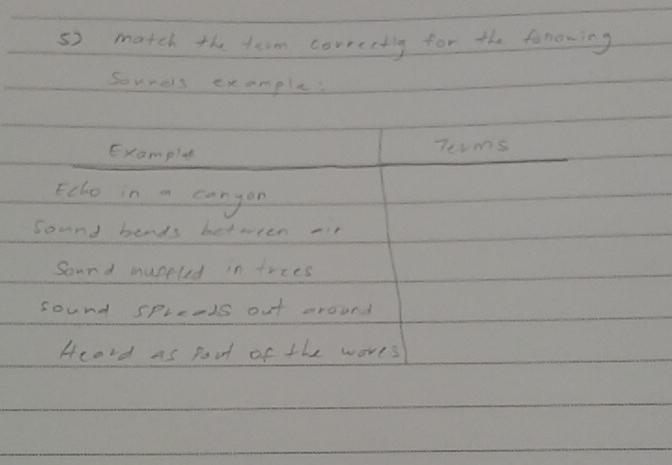 5) Match the term correctly for the following
Sounds example:
Example Terms
Echo in a canyon
Sound bends between air
Sound muffled in trees
sound spreads out around
Heard as part of the waves